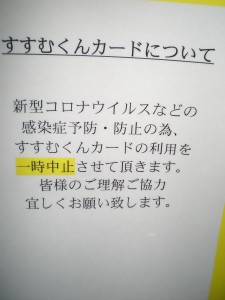 すすむくんカードについて
新型コロナウイルスなどの
感染症予防・防止の為、
すすむくんカードの利用を
一時中止させて頂きます。
皆様のご理解ご協力
宜しくお願い致します。